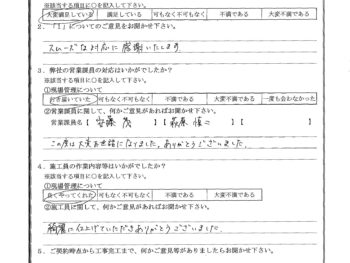 ※該当する項目に○を記入して下さい。
大変満足している 満足している 可もなく不可もなく 不満である 大変不満である
2．「1」についてのご意見をお聞かせ下さい。
スムーズな対応に感謝いたします
3．弊社の営業課員の対応はいかがでしたか？
※該当する項目に○を記入して下さい。
①現場管理について
お客様していた 可もなく不可もなく 不満である 大変不満である 一度も会わなかった
②営業課員に関して、何かご意見があればお聞かせ下さい。
営業課員名【 安藤 茂 】【 萩原 慎二 】【 】
この度は大変お世話になりました。ありがとうございました。
4．施工員の作業内容等はいかがでしたか？
※該当する項目に○を記入して下さい。
①現場管理について
良くやってくれた 可もなく不可もなく 不満である 大変不満である
②施工員に関して、何かご意見があればお聞かせ下さい。
綺麗に仕上げていただきありがとうございました。
5．ご契約時点から工事完工まで、何かご意見等がありましたらお聞かせ下さい。